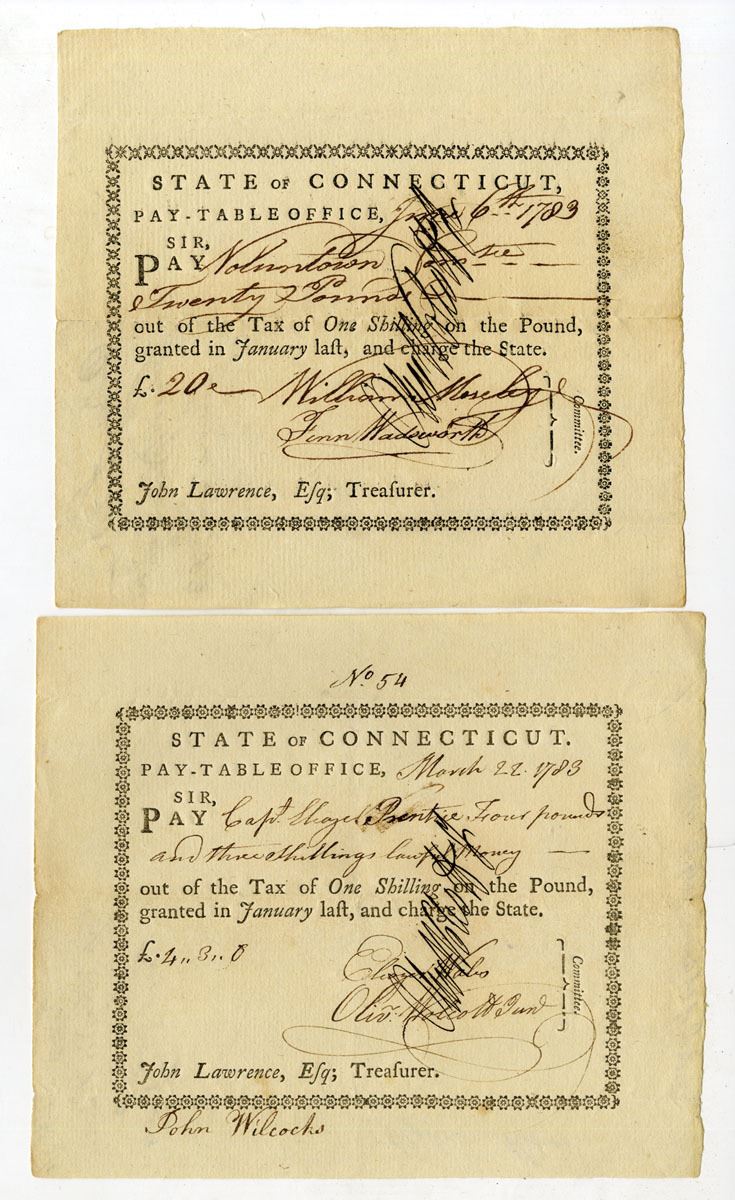 STATE OF CONNECTICUT,
PAY-TABLE OFFICE, June 6th 1783
SIR,
PAY Voluntown Comtee
Twenty Pounds
out of the Tax of One Shilling on the Pound,
granted in January laſt, and charge the State.
£. 20
William Moseley
Fenn Wadsworth
Committee.
John Lawrence, Eſq; Treaſurer.
No 54
STATE OF CONNECTICUT.
PAY-TABLE OFFICE, March 22. 1783
SIR,
PAY Capt. Prentice Four pounds
and three shillings lawful Money
out of the Tax of One Shilling on the Pound,
granted in January laſt, and charge the State.
£. 4,, 3,, 0
Eleazer Wales
Olivr. Wolcott Junr
Committee.
John Lawrence, Eſq; Treaſurer.
John Wilcocks